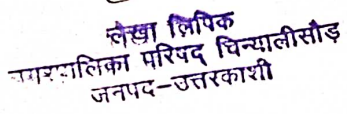 लेखा लिपिक
नगरपालिका परिषद चिन्यालीसौड़
जनपद-उत्तरकाशी